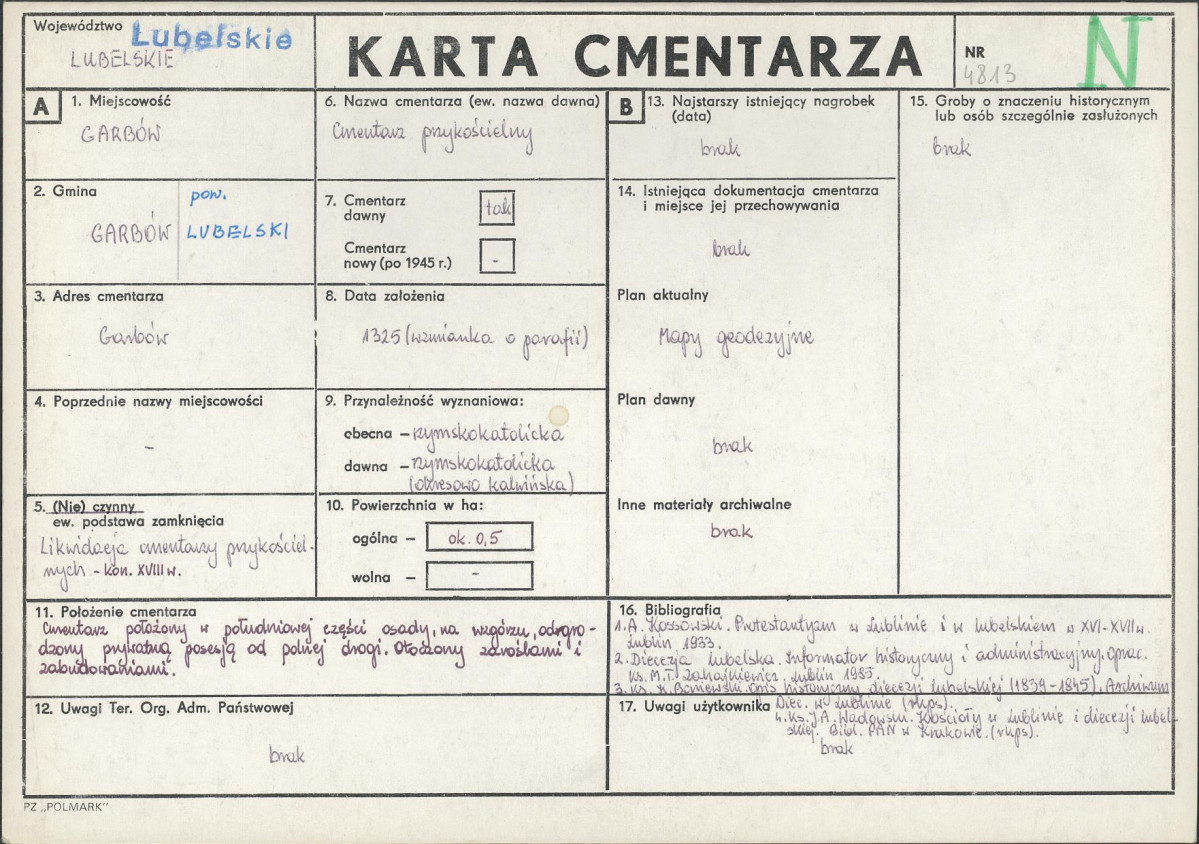 Województwo Lubelskie
LUBELSKIE
KARTA CMENTARZA
NR
4813
N
A
1. Miejscowość
GARBÓW
2. Gmina
GARBÓW
pow.
LUBELSKI
3. Adres cmentarza
Garbów
4. Poprzednie nazwy miejscowości
-
5. (Nie) czynny
ew. podstawa zamknięcia
Likwidacja cmentarzy przykościel-
nych - kon. XVIII w.
6. Nazwa cmentarza (ew. nazwa dawna)
Cmentarz przykościelny
7. Cmentarz
dawny
tak
Cmentarz
nowy (po 1945 r.)
-
8. Data założenia
1325 (wzmianka o parafii)
9. Przynależność wyznaniowa:
obecna – rzymskokatolicka
dawna – rzymskokatolicka
(okresowo kalwińska)
10. Powierzchnia w ha:
ogólna – ok. 0,5
wolna – -
11. Położenie cmentarza
Cmentarz położony w południowej części osady, na wzgórzu, odgro-
dzony prywatną posesją od polnej drogi. Otoczony zaroślami i
zabudowaniami.
12. Uwagi Ter. Org. Adm. Państwowej
brak
B
13. Najstarszy istniejący nagrobek
(data)
brak
14. Istniejąca dokumentacja cmentarza
i miejsce jej przechowywania
brak
Plan aktualny
Mapy geodezyjne
Plan dawny
brak
Inne materiały archiwalne
brak
15. Groby o znaczeniu historycznym
lub osób szczególnie zasłużonych
brak
16. Bibliografia
1. A. Kossowski. Protestantyzm w Lublinie i w lubelskiem w XVI-XVII w.
Lublin 1933.
2. Diecezja lubelska. Informator historyczny i administracyjny. oprac.
ks. M.T. Zahajkiewicz. Lublin 1985.
3. ks. K. Boniewski. Opis historyczny diecezji lubelskiej (1839-1845). Archiwum
Diec. w Lublinie (rkps).
4. Ks. J.A. Wadowski. Kościoły w Lublinie i diecezji lubel-
skiej. Bibl. PAN w Krakowie. (rkps).
17. Uwagi użytkownika
brak
PZ „POLMARK"